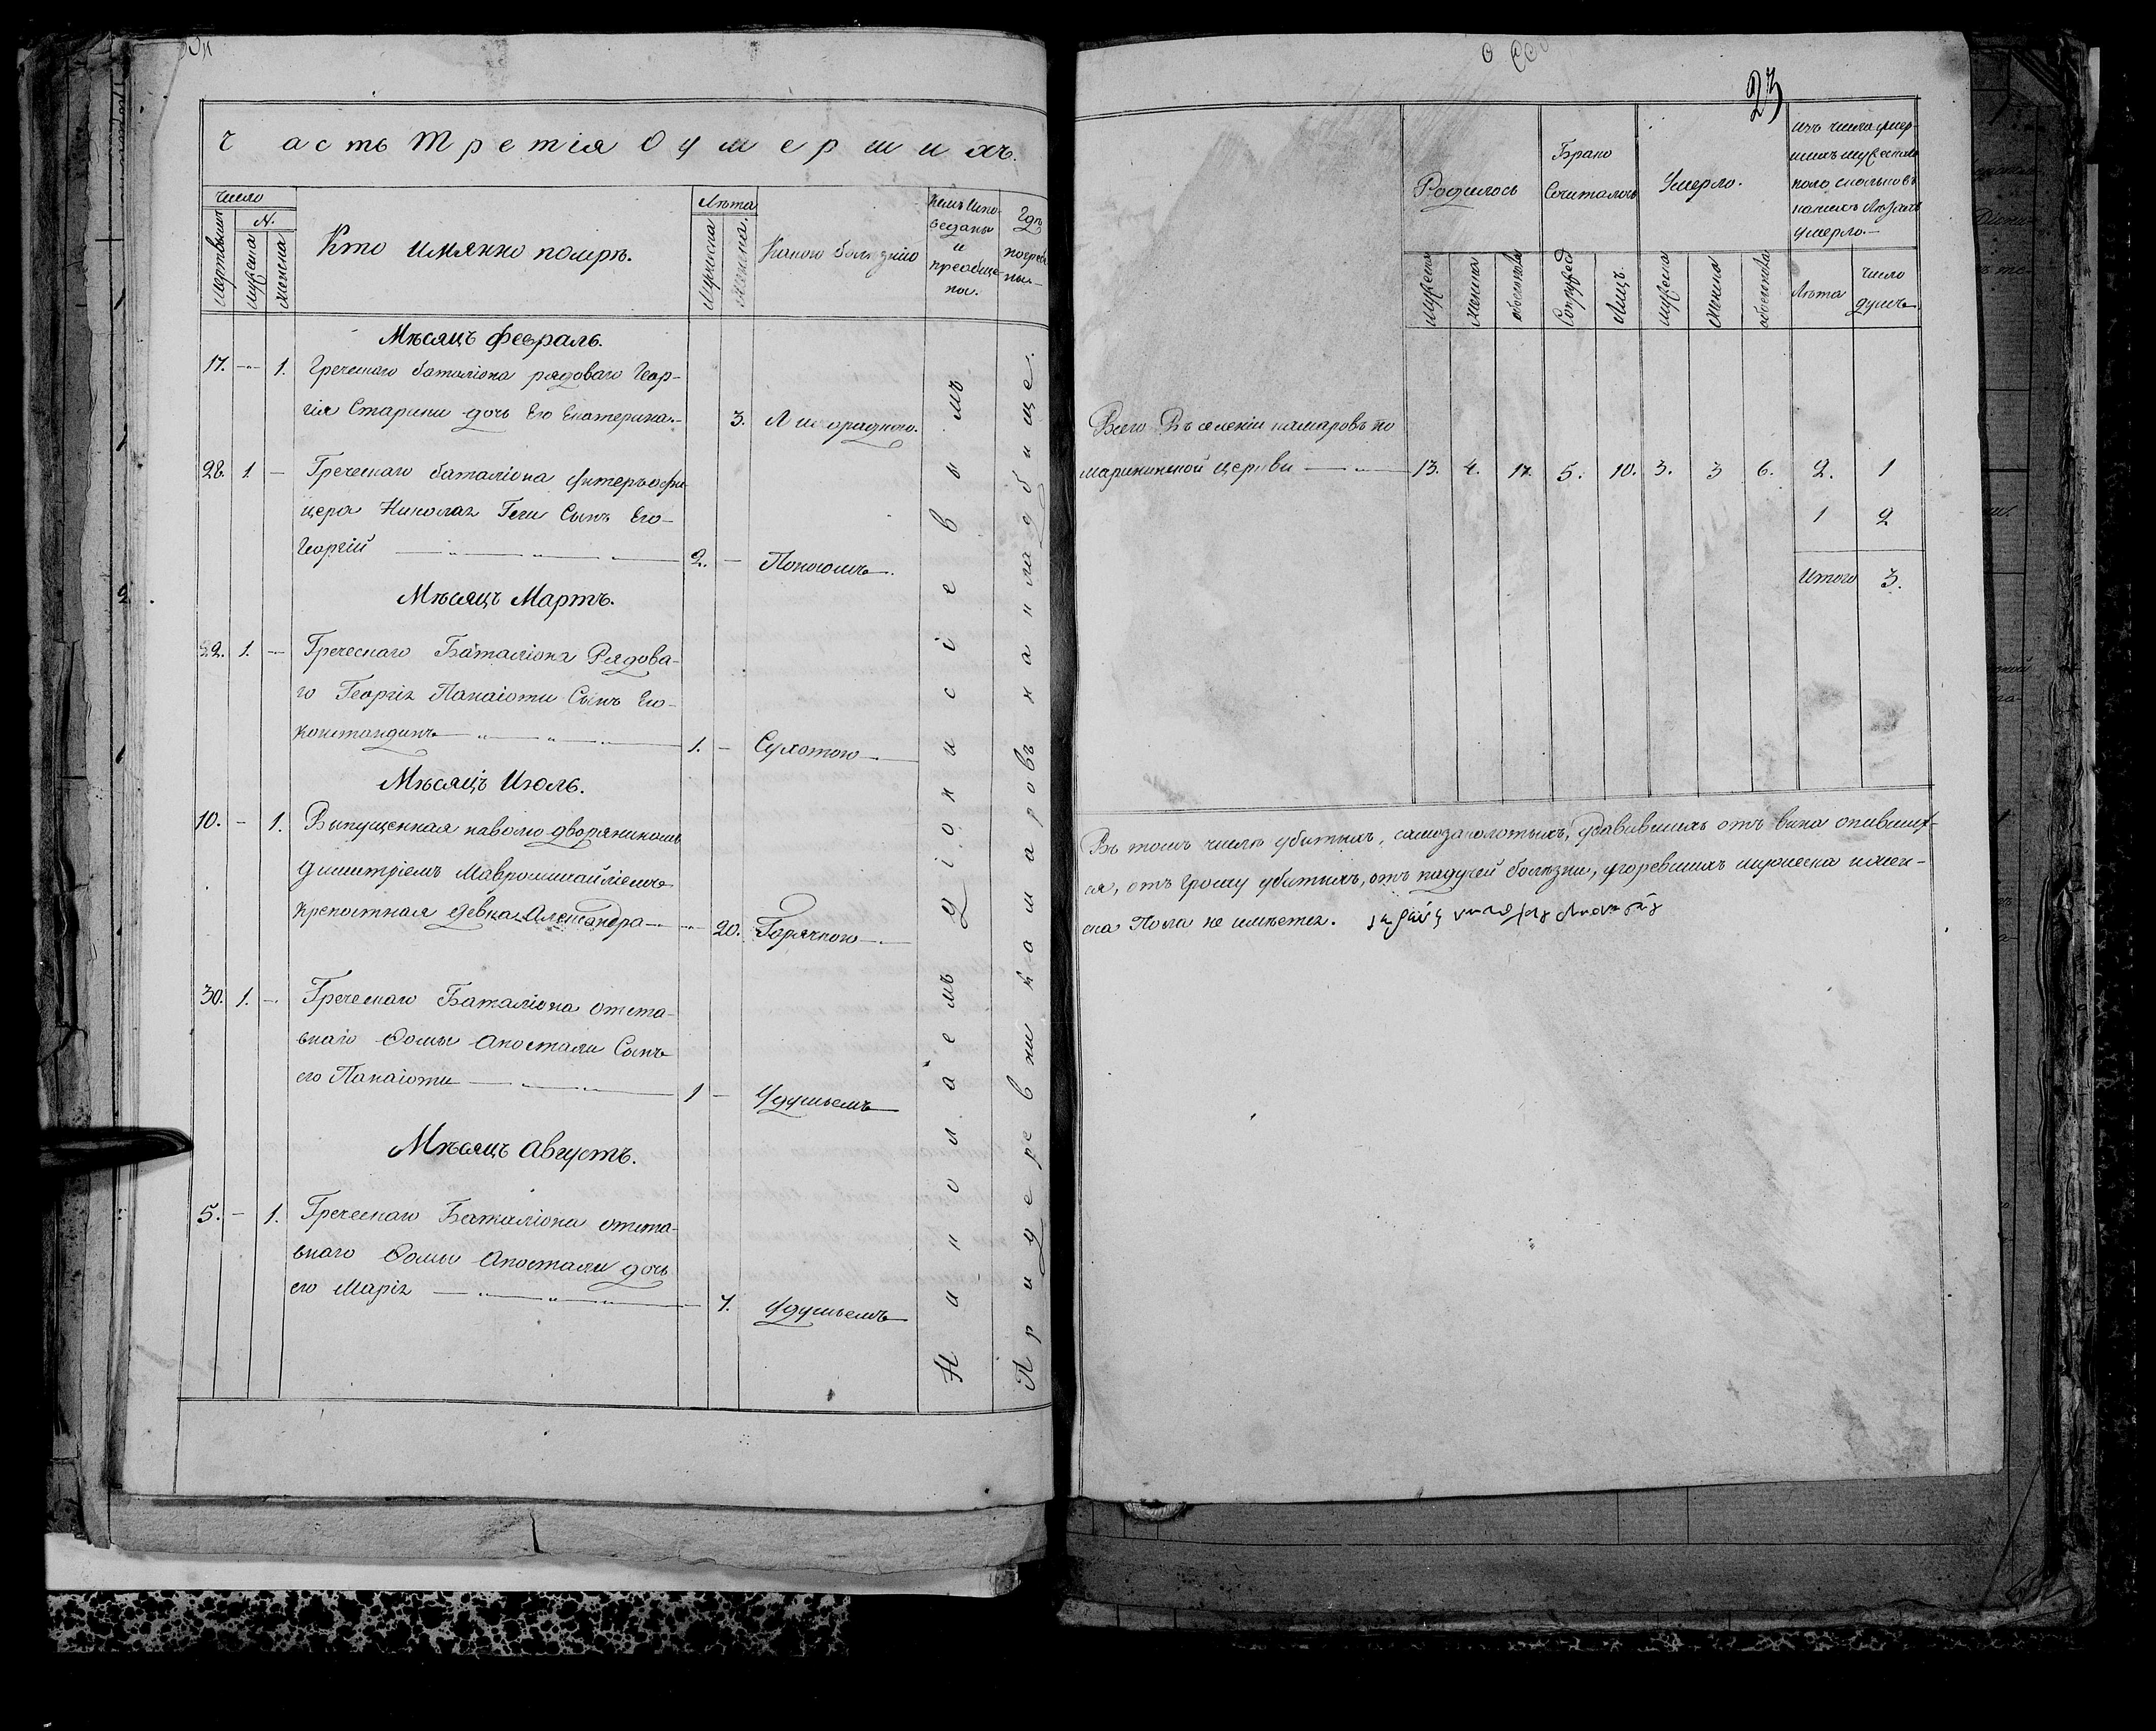 часть Третія О умершихъ.
Число
Мертвыхъ
N.
мужеска
женска
Кто имянно помръ.
Лѣта
Мужеска
женска
Какою болѣзнію
Кемъ Испо-
веданы
и
преобще-
ны.
Гдѣ
погребе-
ны.
Мѣсяцъ февраль.
17. — 1. Греческаго баталіона рядоваго Геор-
гія Старини дочь Его Екатерина.— 3. Лихорадкою.
28. 1. — Греческаго баталіона Унтеръ офи-
цера Николая Геги Сынъ Его—
Георгій — 2. — Поносомъ.
Мѣсяцъ Мартъ.
22. 1. — Греческаго Баталіона Рядова-
го Георгія Панаіоти Сынъ Его—
Констандинъ — 1. — Сухотою.
Мѣсяцъ Июль.
10. — 1. Выпущенная наволю дворяниномъ
Димитріемъ Мавромихайліемъ
крепостная девка Александра — 20. Горячкою.
30. 1. — Греческаго Баталіона отста-
внаго Ѳомы Апостоли Сынъ
его Панаіоти — 1 — Удушьемъ
Мѣсяцъ Августъ.
5. — 1. Греческаго Баталіона отста-
внаго Ѳомы Апостоли дочь
его Марія — 7. Удушьемъ
Николаемъ Діонисіевымъ
При деревни Камаровъ на кладбище.
23
Родилось
Брако
Сочиталось
Умерло.
изъ числа умер-
шихъ мужеска
пола сколько въ
какихъ Лѣтахъ
умерло.—
мужеска
женска
обоего пола
Супружествъ
Лицъ
мужеска
женска
обоего пола
Лѣта
Число
душъ
Всего Въ селеніи камаровъ по
марининской церкви — 13. 4. 17. 5. 10. 3. 3 6. 2. 1
1 2
Итого 3.
Въ томъ числѣ убитыхъ, самозаколотыхъ, удавившихъ отъ вина опивших-
ся, отъ Грому убитыхъ, отъ падучей болѣзни, угоревшихъ мужеска и жен-
ска Пола не имѣется.